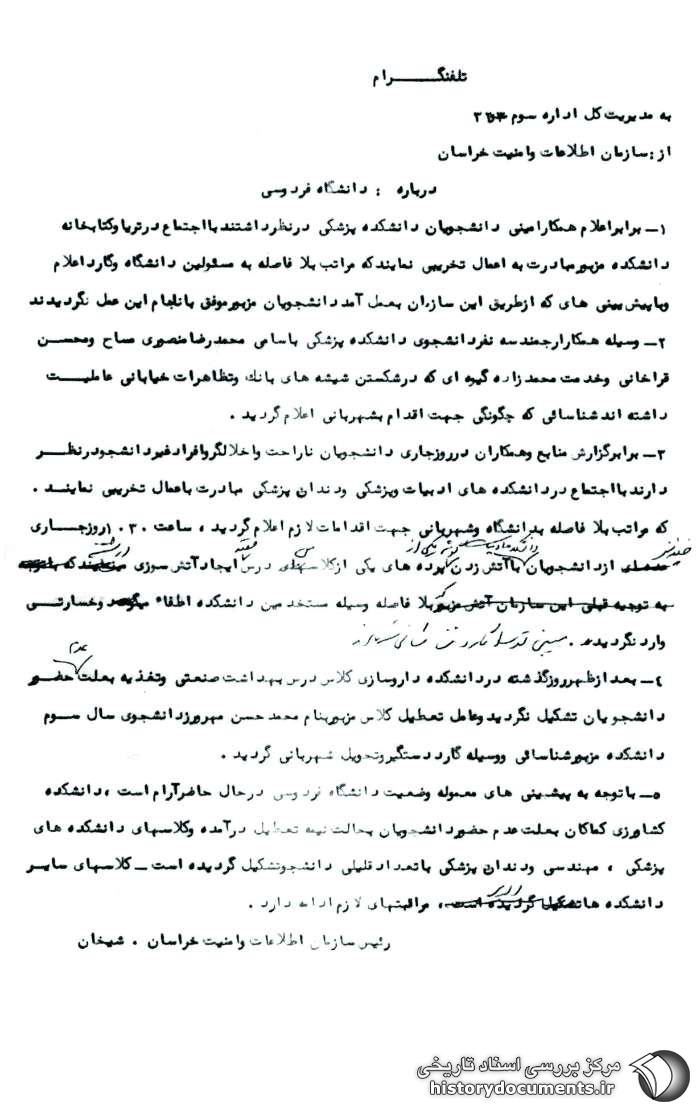 تلفنگـــــرام
به مدیریت کل اداره سوم
از: سازمان اطلاعات وامنیت خراسان
درباره : دانشگاه فردوسی
۱ـ برابراعلام همکارامینی دانشجویان دانشکده پزشکی درنظرداشتند بااجتماع درتریاوکتابخانه
دانشکده مزبورمبادرت به اعمال تخریبی نمایندکه مراتب بلا فاصله به مسئولین دانشگاه وگارداعلام
وباپیش بینی های که ازطریق این سازمان بعمل آمد دانشجویان مزبورموفق باانجام این عمل نگردیدند
۲ـ وسیله همکارارجمند سه نفردانشجوی دانشکده پزشکی باسامی محمدرضامنصوری مساح ومحسن
قراخانی وخدمت محمدزاده گیوه ای که درشکستن شیشه های بانك وتظاهرات خیابانی عاملیت
داشته اندشناسائی که چگونگی جهت اقدام بشهربانی اعلام گردید .
۳ـ برابرگزارش منابع وهمکاران درروزجاری دانشجویان ناراحت واخلالگروافرادغیردانشجودرنظــر
دارند بااجتماع دردانشکده های ادبیات وپزشکی ودندان پزشکی مبادرت باعمال تخریبی نماینــد .
که مراتب بلا فاصله بدانشگاه وشهربانی جهت اقدامات لازم اعلام گردید ، ساعت ۱۰۳۰ روزجــاری
ازدانشجویان باآتش زدن پرده های یکی ازکلاسهای درس ایجادآتش سوزی
به توجیه قبلی این سازمان آتش مزبور بلا فاصله وسیله مستخدمین دانشکده اطفاء وخسارتــی
واردنگردید .
۴ـ بعدازظهرروزگذشته دردانشکده داروسازی کلاس درس بهداشت صنعتی وتغذیه بعلت عدم حضــور
دانشجویان تشکیل نگردید وعامل تعطیل کلاس مزبوربنام محمد حسن مهرورزدانشجوی سال سوم
دانشکده مزبورشناسائی ووسیله گارد دستگیروتحویل شهربانی گردید .
۵ـ باتوجه به پیشبینی های معموله وضعیت دانشگاه فردوسی درحال حاضرآرام است ، دانشکده
کشاورزی کماکان بعلت عدم حضوردانشجویان بحالت نیمه تعطیل درآمده وکلاسهای دانشکده های
پزشکی ، مهندسی ودندان پزشکی باتعدادقلیلی دانشجوتشکیل گردیده است ـ کلاسهای سایــر
دانشکده هاتشکیل گردیده است ، مراقبتهای لازم ادامه دارد .
رئیس سازمان اطلاعات وامنیت خراسان . شیخان
مرکز بررسی اسناد تاریخی
historydocuments.ir